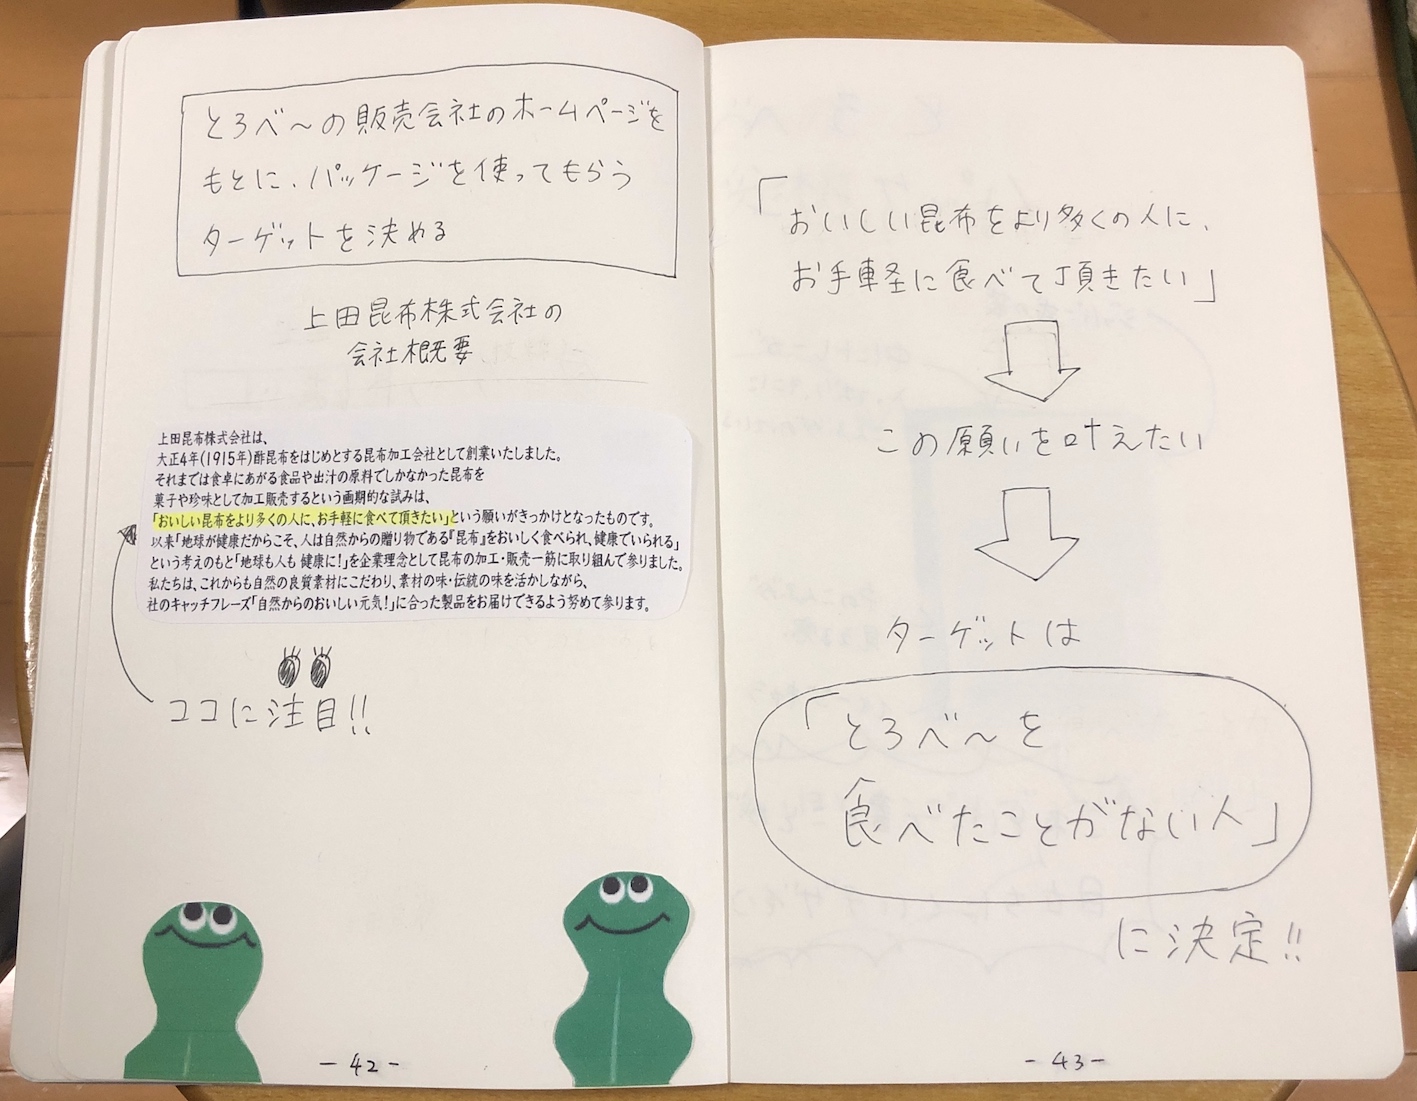 とろべ〜の販売会社のホームページを
もとに、パッケージを使ってもらう
ターゲットを決める
上田昆布株式会社の
会社概要
上田昆布株式会社は、
大正4年(1915年)酢昆布をはじめとする昆布加工会社として創業いたしました。
それまでは食卓にあがる食品や出汁の原料でしかなかった昆布を
菓子や珍味として加工販売するという画期的な試みは、
「おいしい昆布をより多くの人に、お手軽に食べて頂きたい」という願いがきっかけとなったものです。
以来「地球が健康だからこそ、人は自然からの贈り物である『昆布』をおいしく食べられ、健康でいられる」
という考えのもと「地球も人も 健康に!」を企業理念として昆布の加工・販売一筋に取り組んで参りました。
私たちは、これからも自然の良質素材にこだわり、素材の味・伝統の味を活かしながら、
社のキャッチフレーズ「自然からのおいしい元気!」に合った製品をお届けできるよう努めて参ります。
ココに注目!!
- 42 -
「おいしい昆布をより多くの人に、
お手軽に食べて頂きたい」
この願いを叶えたい
ターゲットは
「とろべ〜を
食べたことがない人」
に決定!!
- 43 -